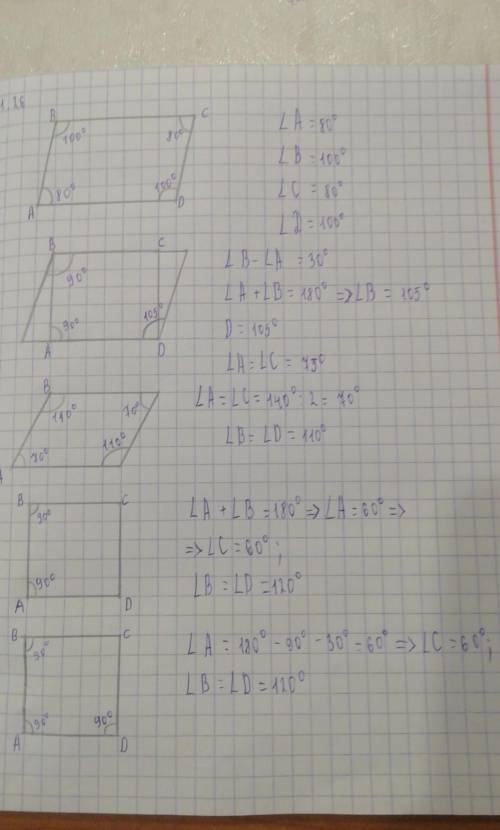 1.26
B C
100° 80°
80° 100°
A D
∠A = 80°
∠B = 100°
∠C = 80°
∠D = 100°
B C
90°
90° 105°
A D
∠B - ∠A = 30°
∠A + ∠B = 180° => ∠B = 105°
D = 105°
∠A = ∠C = 75°
B
110° 70°
70° 110°
A
∠A = ∠C = 140° : 2 = 70°
∠B = ∠D = 110°
B C
90°
90°
A D
∠A + ∠B = 180° => ∠A = 60° =>
=> ∠C = 60° ;
∠B = ∠D = 120°
B C
90°
90° 90°
A D
∠A = 180° - 90° - 30° = 60° => ∠C = 60° ;
∠B = ∠D = 120°